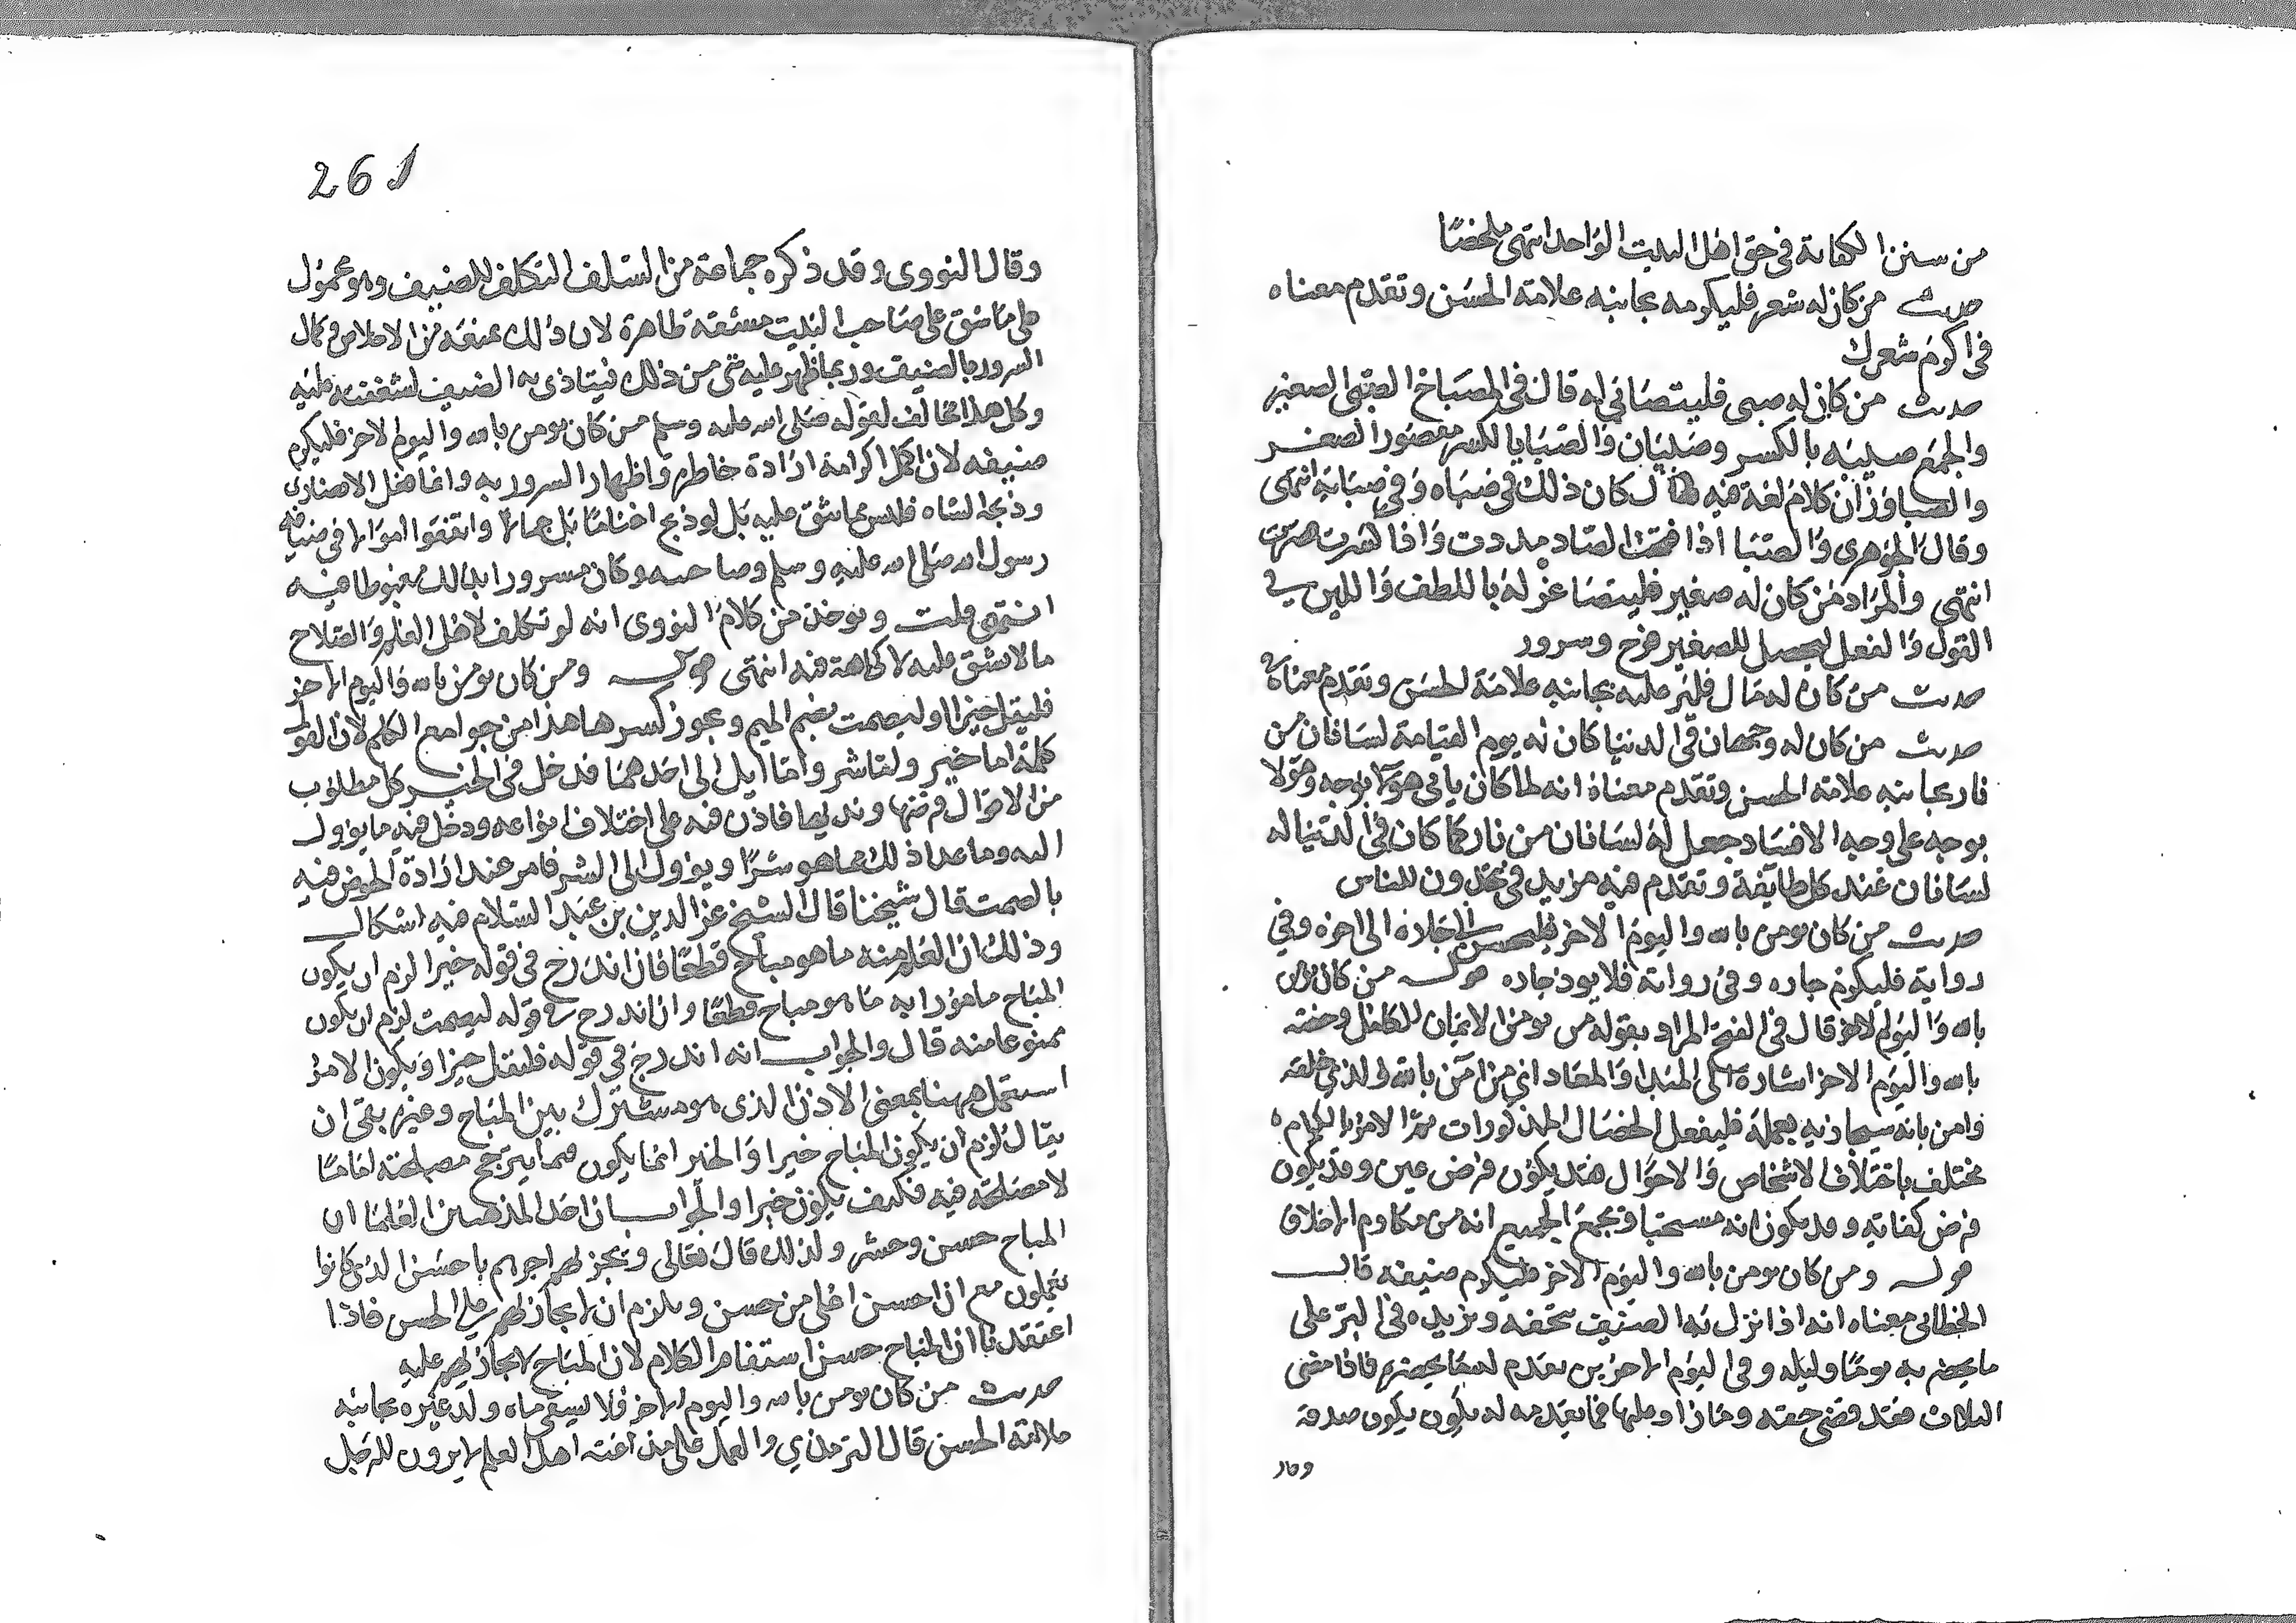 من سنن الكفاية في حق اهل البيت الواحد انتهى ملخصا
حديث من كان له شعر فليكرمه بجانبه علامة الحسن وتقدم معناه
في اكرم شعرك
حديث من كان له صبي فليتصابى له قال في المصباح الصبي الصغير
والجمع صبية بالكسر وصبيان والصبا بالكسر مقصورا الصغر
والصبا وزان كلام لغة فيه يقال كان ذلك في صباه وفي صبايه انتهى
وقال الجوهري والصبا اذا فتحت الصاد مددت واذا كسرت قصرت
انتهى والمراد من كان له صغير فليتصاغر له باللطف واللين في
القول والفعل ليحصل للصغير فرح وسرور
حديث من كان له مال فلير عليه بجانبه علامة الحسن وتقدم معناه
حديث من كان له وجهان في الدنيا كان له يوم القيامة لسانان من
نار بجانبه علامة الحسن وتقدم معناه انه لما كان ياتي هؤلا بوجه وهؤلا
بوجه على وجه الافساد جعل له لسانان من نار كما كان في الدنيا له
لسانان عند كل طايفة وتقدم فيه مزيد في تجدون للناس
حديث من كان يومن بالله واليوم الاخر فليحسن الى جاره الى اخره وفي
رواية فليكرم جاره وفي رواية فلا يوذ جاره قوله من كان يومن
بالله واليوم الاخر قال في الفتح المراد بقوله من يومن الايمان الكامل وخصه
بالله واليوم الاخر اشارة الى المبدا والمعاد اي من آمن بالله الذي خلقه
وامن بانه سيجازيه بعمله فليفعل الخصال المذكورات ثم الامر بالاكرام
مختلف باختلاف الاشخاص والاحوال فقد يكون فرض عين وقد يكون
فرض كفاية وقد يكون انه مستحبا ويجمع الجميع انه من مكارم الاخلاق
قوله ومن كان يومن بالله واليوم الاخر فليكرم ضيفه قال
الخطابي معناه انه اذا نزل به الضيف يتحفه ويزيده في البر على
ما يحضر به يوما وليلة وفي اليوم الاخرين يقدم له ما يحضره فاذا مضى
الثلاث فقد قضى حقه وما زاد عليها مما يقدمه له يكون صدقة
وقال
261
وقال النووي وقد ذكره جماعة من السلف التكلف للضيف وهو محمول
على ما يشق على صاحب البيت مشقة ظاهرة لان ذلك يمنعه من الاخلاص وكمال
السرور بالضيف وربما ظهر عليه شي من ذلك فيتاذى به الضيف لشفقته عليه
وكل هذا مخالف لقوله صلى الله عليه وسلم من كان يومن بالله واليوم الاخر فليكرم
ضيفه لان اكمل اكرامه اراحة خاطره واظهار السرور به واما فعل الانصاري
وذبحه الشاه فليس مما يشق عليه بل لو ذبح اغناما بل جمالا وانفق اموالا في ضيافة
رسول الله صلى الله عليه وسلم وصاحبيه وكان مسرورا بذلك مغبوطا فيه
انتهى قلت ويوخذ من كلام النووي انه لو تكلف لاهل العلم والصلاح
ما لا يشق عليه لا كراهة فيه انتهى قوله ومن كان يومن بالله واليوم الاخر
فليقل خيرا او ليصمت بضم الميم ويجوز كسرها هذا من جوامع الكلم لان القول
كله اما خير واما شر واما ايل الى احدهما فدخل في الخير كل مطلوب
من الاقوال فرضها وندبها فاذن فيه على اختلاف انواعه ودخل فيه ما يؤول
اليه وما عدا ذلك مما هو شرا ويؤول الى الشر فامر عند ارادة الخوض فيه
بالصمت قال شيخنا قال الشيخ عز الدين بن عبد السلام فيه اشكال
وذلك ان العلم منه ما هو مباح قطعا فان اندرج في قوله خيرا لزم ان يكون
المباح مامورا به ما هو مباح قطعا وان اندرج في قوله ليصمت لزم ان يكون
ممنوعا منه قال والجواب انه اندرج في قوله فليقل خيرا ويكون الامر
استعمل ههنا بمعنى الاذن الذي هو مشترك بين المباح وغيره بقي ان
يقال لزم ان يكون المباح خيرا والخير انما يكون فيما يترجح مصلحته اما ما
لا مصلحة فيه فكيف يكون خيرا والجواب ان احد المذهبين للعلما ان
المباح حسن وحشر ولذلك قال تعالى ويجزيهم اجرهم باحسن الذي كانوا
يعملون مع ان احسن اعلى من حسن ويلزم ان لا يجازيهم على الحسن فاذا
اعتقدنا ان المباح حسن استقام الكلام لان المباح لا يجازيهم عليه
حديث من كان يومن بالله واليوم الاخر فلا يسقي ماه ولد غيره بجانبه
علامة الحسن قال الترمذي والعمل على هذا عند اهل العلم لا يرون للرجل